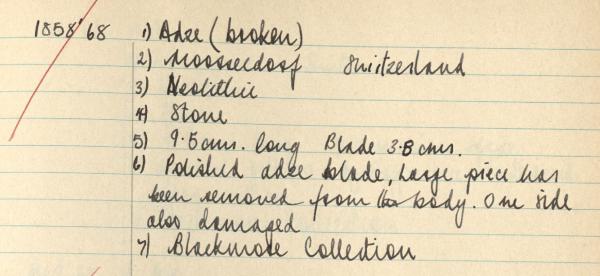 1858'68 1) Adze (broken)
2) Moosseedorf Switzerland
3) Neolithic
4) Stone
5) 9.5cms. long Blade 3.8 cms.
6) Polished adze blade, Large piece has
been removed from the body. One side
also damaged
7) Blackmore Collection